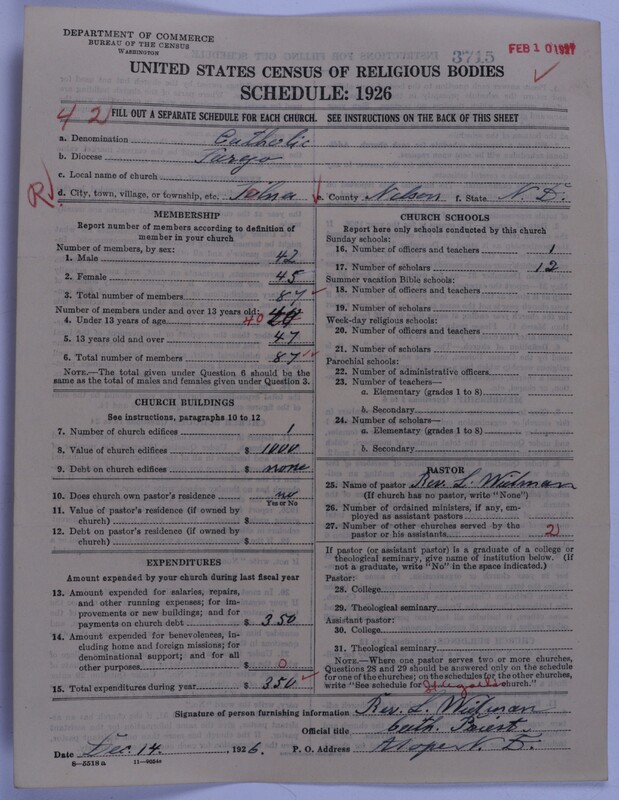 DEPARTMENT OF COMMERCE
BUREAU OF THE CENSUS
WASHINGTON
3715
FEB 10 1927
UNITED STATES CENSUS OF RELIGIOUS BODIES
SCHEDULE: 1926
42
FILL OUT A SEPARATE SCHEDULE FOR EACH CHURCH. SEE INSTRUCTIONS ON THE BACK OF THIS SHEET
a. Denomination Catholic
b. Diocese Fargo
c. Local name of church
R d. City, town, village, or township, etc. Tolna e. County Nelson f. State N. D.
MEMBERSHIP
Report number of members according to definition of
member in your church
Number of members, by sex:
1. Male 42
2. Female 45
3. Total number of members 87
Number of members under and over 13 years old:
4. Under 13 years of age 40
5. 13 years old and over 47
6. Total number of members 87
NOTE.—The total given under Question 6 should be the
same as the total of males and females given under Question 3.
CHURCH BUILDINGS
See instructions, paragraphs 10 to 12
7. Number of church edifices 1
8. Value of church edifices $ 1000
9. Debt on church edifices $ none
10. Does church own pastor's residence no
Yes or No
11. Value of pastor's residence (if owned by
church) $
12. Debt on pastor's residence (if owned by
church) $
EXPENDITURES
Amount expended by your church during last fiscal year
13. Amount expended for salaries, repairs,
and other running expenses; for im-
provements or new buildings; and for
payments on church debt $ 350
14. Amount expended for benevolences, in-
cluding home and foreign missions; for
denominational support; and for all
other purposes $ 0
15. Total expenditures during year $ 350
CHURCH SCHOOLS
Report here only schools conducted by this church
Sunday schools:
16. Number of officers and teachers 1
17. Number of scholars 12
Summer vacation Bible schools:
18. Number of officers and teachers
19. Number of scholars
Week-day religious schools:
20. Number of officers and teachers
21. Number of scholars
Parochial schools:
22. Number of administrative officers
23. Number of teachers—
a. Elementary (grades 1 to 8)
b. Secondary
24. Number of scholars—
a. Elementary (grades 1 to 8)
b. Secondary
PASTOR
25. Name of pastor Rev. L.
(If church has no pastor, write "None")
26. Number of ordained ministers, if any, em-
ployed as assistant pastors
27. Number of other churches served by the
pastor or his assistants 2
If pastor (or assistant pastor) is a graduate of a college or
theological seminary, give name of institution below. (If
not a graduate, write "No" in the space indicated.)
Pastor:
28. College
29. Theological seminary
Assistant pastor:
30. College
31. Theological seminary
NOTE.—Where one pastor serves two or more churches,
Questions 28 and 29 should be answered only on the schedule
for one of the churches; on the schedules for the other churches,
write "See schedule for church."
Signature of person furnishing information Rev. L.
Official title Cath. Priest
Date Dec. 14, 1926. P. O. Address N. D.
8-5518a